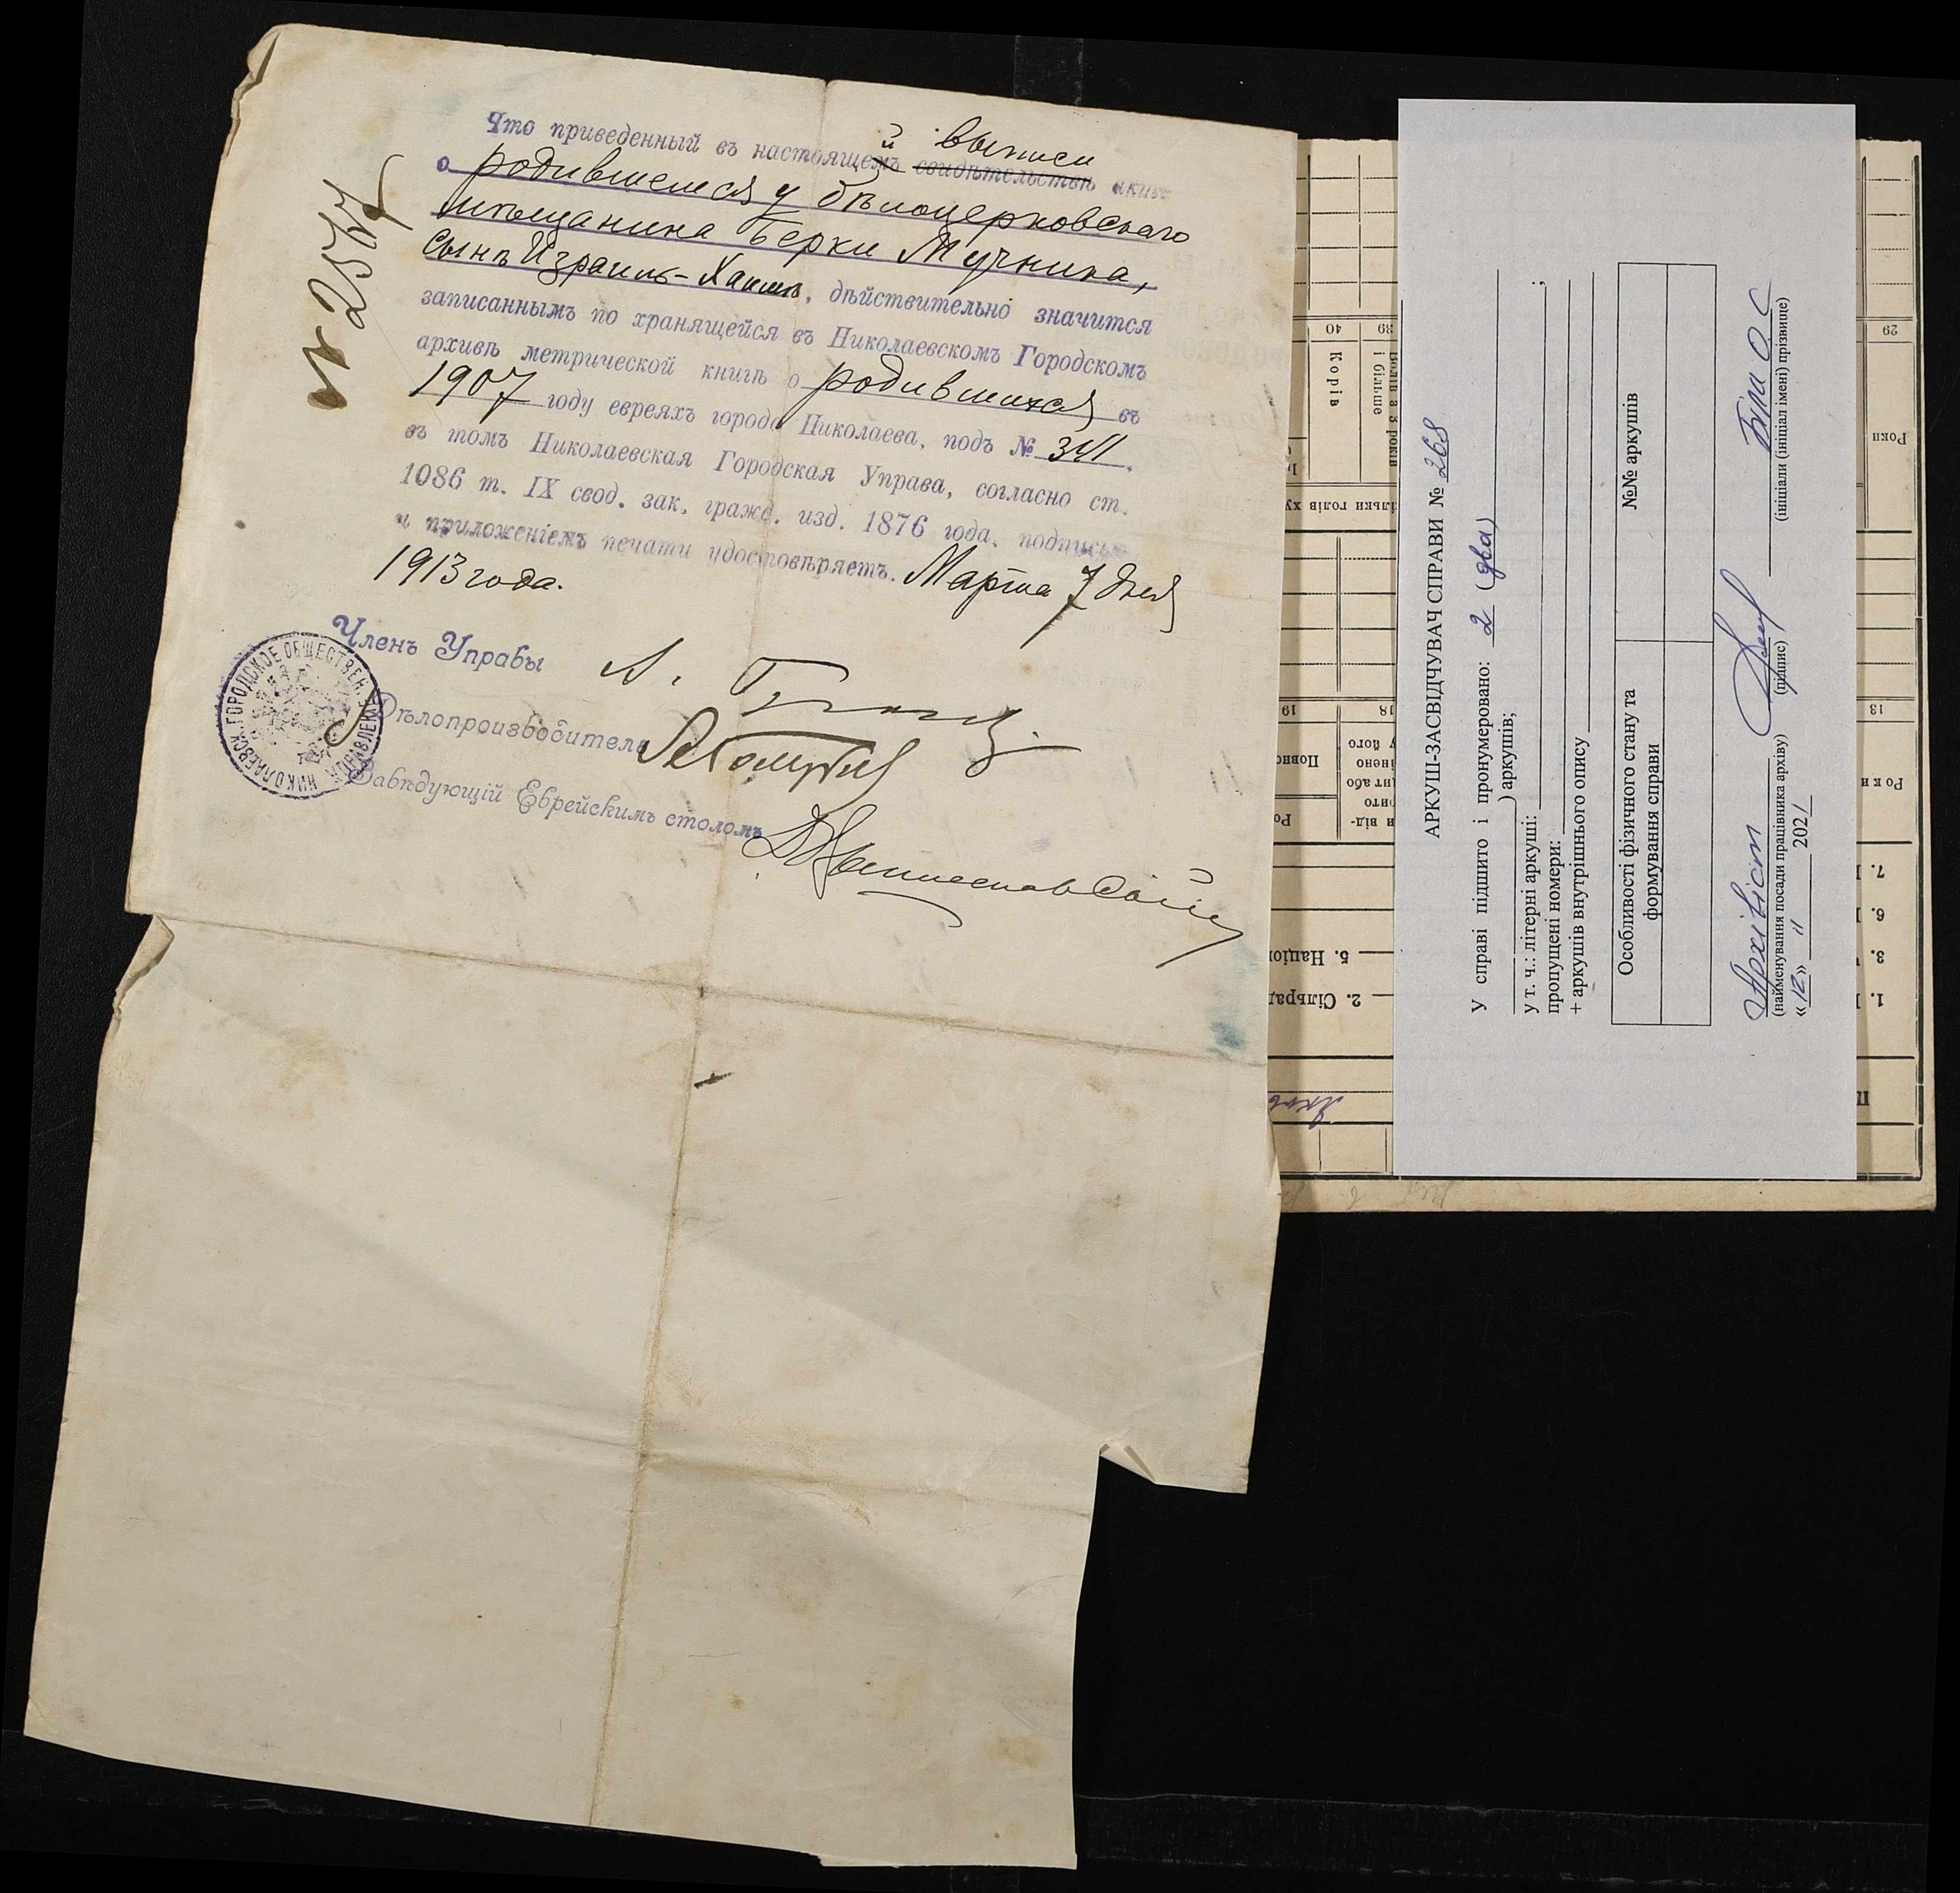 Что приведенный въ настоящемъй свидѣтельствѣ выписи актъ
о родившемся у бѣлоцерковскаго
мѣщанина Берки Мучника,
сынѣ Израиль-Хаимѣ, дѣйствительно значится
записаннымъ по хранящейся въ Николаевскомъ Городскомъ
архивѣ метрической книгѣ о родившихся въ
1907 году евреяхъ города Николаева, подъ № 341,
въ томъ Николаевская Городская Управа, согласно ст.
1086 т. IX свод. зак. гражд. изд. 1876 года, подписью
и приложеніемъ печати удостовѣряетъ. Марта 7 дня
1913 года.
Членъ Управы
Дѣлопроизводитель
Завѣдующій Еврейскимъ столомъ
НИКОЛАЕВСК. ГОРОДСКОЕ ОБЩЕСТВЕН. УПРАВЛЕНІЕ
№ 2567
АРКУШ-ЗАСВІДЧУВАЧ СПРАВИ № 268
У справі підшито і пронумеровано: 2 (два)
аркушів;
у т. ч.: літерні аркуші: ;
пропущені номери:
+ аркушів внутрішнього опису
Особливості фізичного стану та формування справи
№№ аркушів
Архівіст
(найменування посади працівника архіву)
(підпис)
(ініціали (ініціал імені) прізвище)
«12» 2021
40
39
Корів
і більше
29
Роки
19
18
13
Роки
7.
6.
5. Націон
3.
2. Сільрад
1.